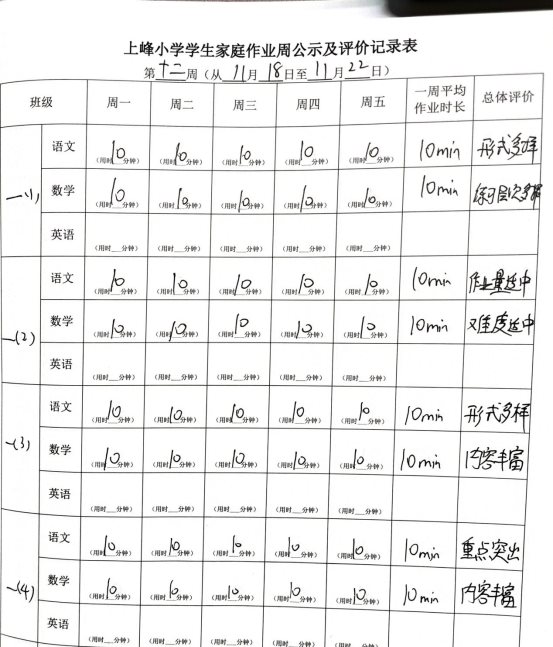 上峰小学学生家庭作业周公示及评价记录表
第十二周（从 11月 18日至 11月 22日）
班级 周一 周二 周三 周四 周五 一周平均作业时长 总体评价
一(1)
语文 （用时10分钟） （用时10分钟） （用时10分钟） （用时10分钟） （用时10分钟） 10min 形式多样
数学 （用时10分钟） （用时10分钟） （用时10分钟） （用时10分钟） （用时10分钟） 10min 练习层次多样
英语 （用时__分钟） （用时__分钟） （用时__分钟） （用时__分钟） （用时__分钟）
一(2)
语文 （用时10分钟） （用时10分钟） （用时10分钟） （用时10分钟） （用时10分钟） 10min 作业量适中
数学 （用时10分钟） （用时10分钟） （用时10分钟） （用时10分钟） （用时10分钟） 10min 难度适中
英语 （用时__分钟） （用时__分钟） （用时__分钟） （用时__分钟） （用时__分钟）
一(3)
语文 （用时10分钟） （用时10分钟） （用时10分钟） （用时10分钟） （用时10分钟） 10min 形式多样
数学 （用时10分钟） （用时10分钟） （用时10分钟） （用时10分钟） （用时10分钟） 10min 内容丰富
英语 （用时__分钟） （用时__分钟） （用时__分钟） （用时__分钟） （用时__分钟）
一(4)
语文 （用时10分钟） （用时10分钟） （用时10分钟） （用时10分钟） （用时10分钟） 10min 重点突出
数学 （用时10分钟） （用时10分钟） （用时10分钟） （用时10分钟） （用时10分钟） 10min 内容丰富
英语 （用时__分钟） （用时__分钟） （用时__分钟） （用时__分钟） （用时__分钟）